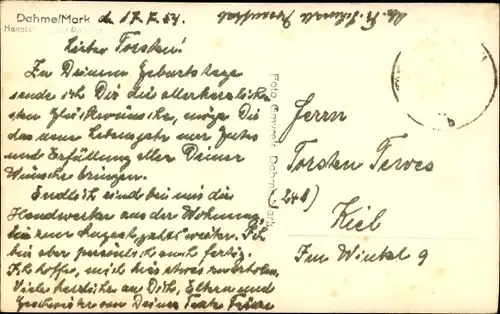 Dahme/Mark
d. 17.7.54.
Lieber Torsten!
Zu Deinem Geburtstage
sende ich Dir die allerherzlich-
sten Glückwünsche, möge Dir
das neue Lebensjahr nur Gutes
und Erfüllung aller Deiner
Wünsche bringen.
Endlich sind bei mir die
Handwerker aus der Wohnung,
weiter. Ich
bin aber persönlich auch fertig.
Ich hoffe, mich hier etwas zu erholen.
Viele herzliche an Dich, Eltern und
Geschwister von Deiner Tante
Foto Dahme/Mark
Herrn
Torsten Terves
(24b)
Kiel
Im Winkel 9